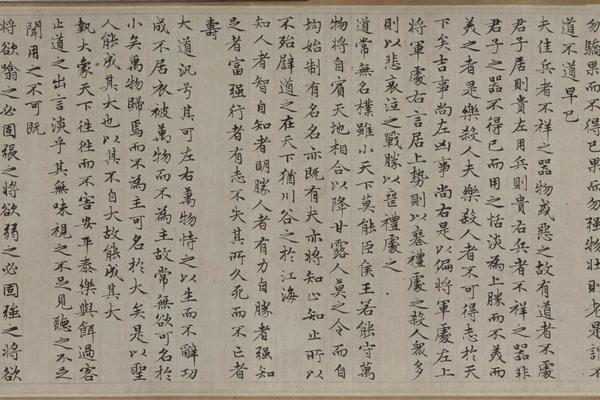 勿驕果而不得已果而勿强物壯則老是謂不
道不道早已
夫佳兵者不祥之器物或惡之故有道者不處
君子居則貴左用兵則貴右兵者不祥之器非
君子之器不得已而用之恬淡為上勝而不美而
美之者是樂殺人夫樂殺人者不可得志於天
下矣吉事尚左凶事尚右是以偏將軍處左上
將軍處右言居上勢則以喪禮處之殺人衆多
則以悲哀泣之戰勝以喪禮處之
道常無名樸雖小天下莫能臣侯王若能守萬
物將自賓天地相合以降甘露人莫之令而自
均始制有名名亦既有夫亦將知止知止所以
不殆譬道之在天下猶川谷之於江海
知人者智自知者明勝人者有力自勝者强知
足者富强行者有志不失其所久死而不亡者
壽
大道汎兮其可左右萬物恃之以生而不辭功
成不居衣被萬物而不為主故常無欲可名於
小矣萬物歸焉而不為主可名於大矣是以聖
人能成其大也以其不自大故能成其大
執大象天下往往而不害安平泰樂與餌過客
止道之出言淡乎其無味視之不足見聽之不足
聞用之不可既
將欲翕之必固張之將欲弱之必固强之將欲